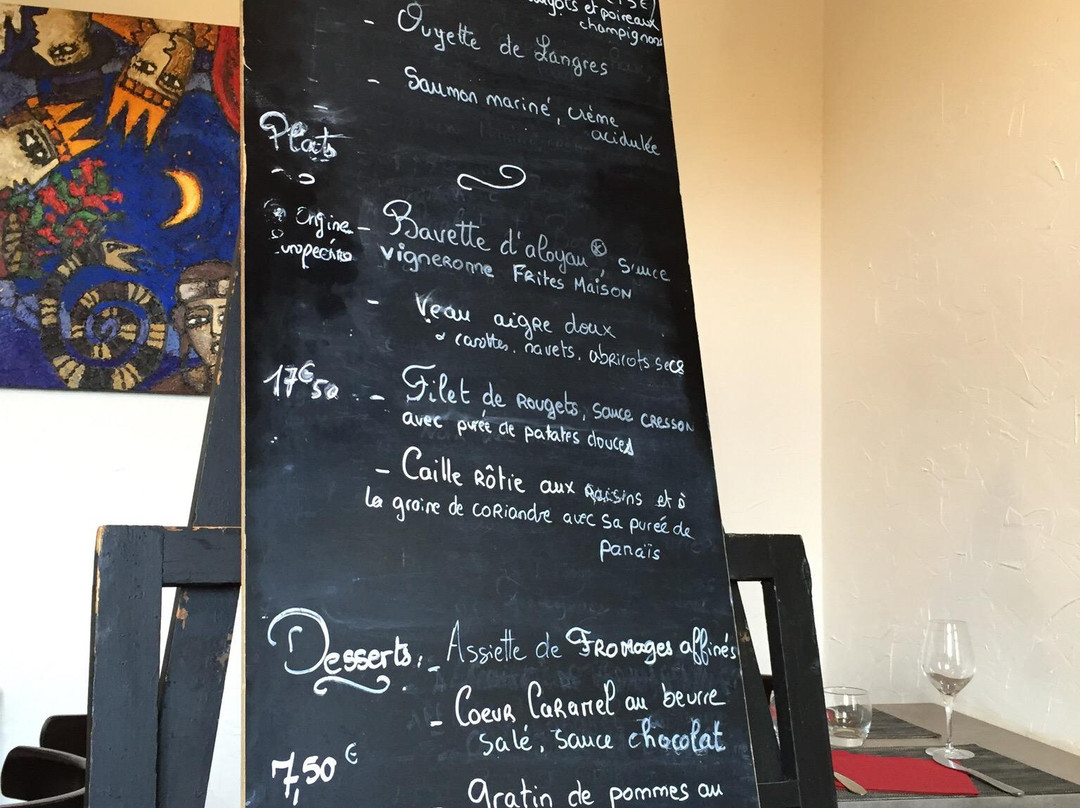 et poireaux
champignons
- Ouyette de Langres
- Saumon mariné, crème
acidulée
Plats
Origine
- Bavette d'aloyau * sauce
vigneronne Frites Maison
- Veau aigre doux
carottes, navets, abricots secs
17€50 - Filet de rougets, sauce cresson
avec purée de patates douces
- Caille rôtie aux raisins et à
la graine de coriandre avec sa purée de
panaïs
Desserts: - Assiette de Fromages affinés
- Coeur Caramel au beurre
salé, sauce chocolat
7,50 €
Gratin de pommes au